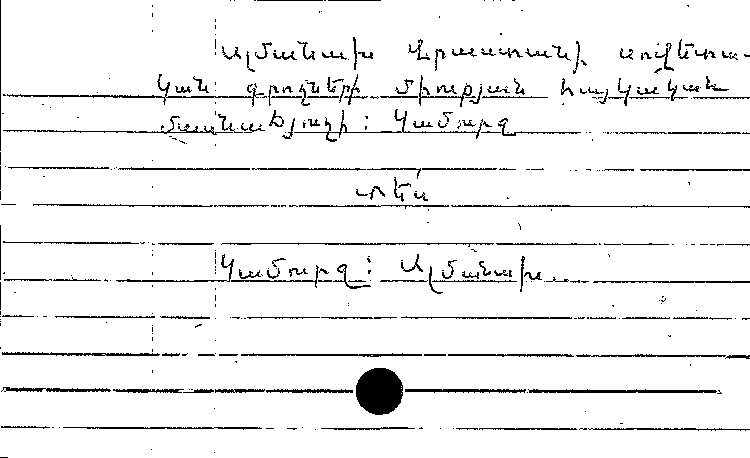 Ալմանախ Վրաստանի սովետա-
կան գրողների միության հայկական
մասնաճյուղի: Կամուրջ
տես
Կամուրջ: Ալմանախ..